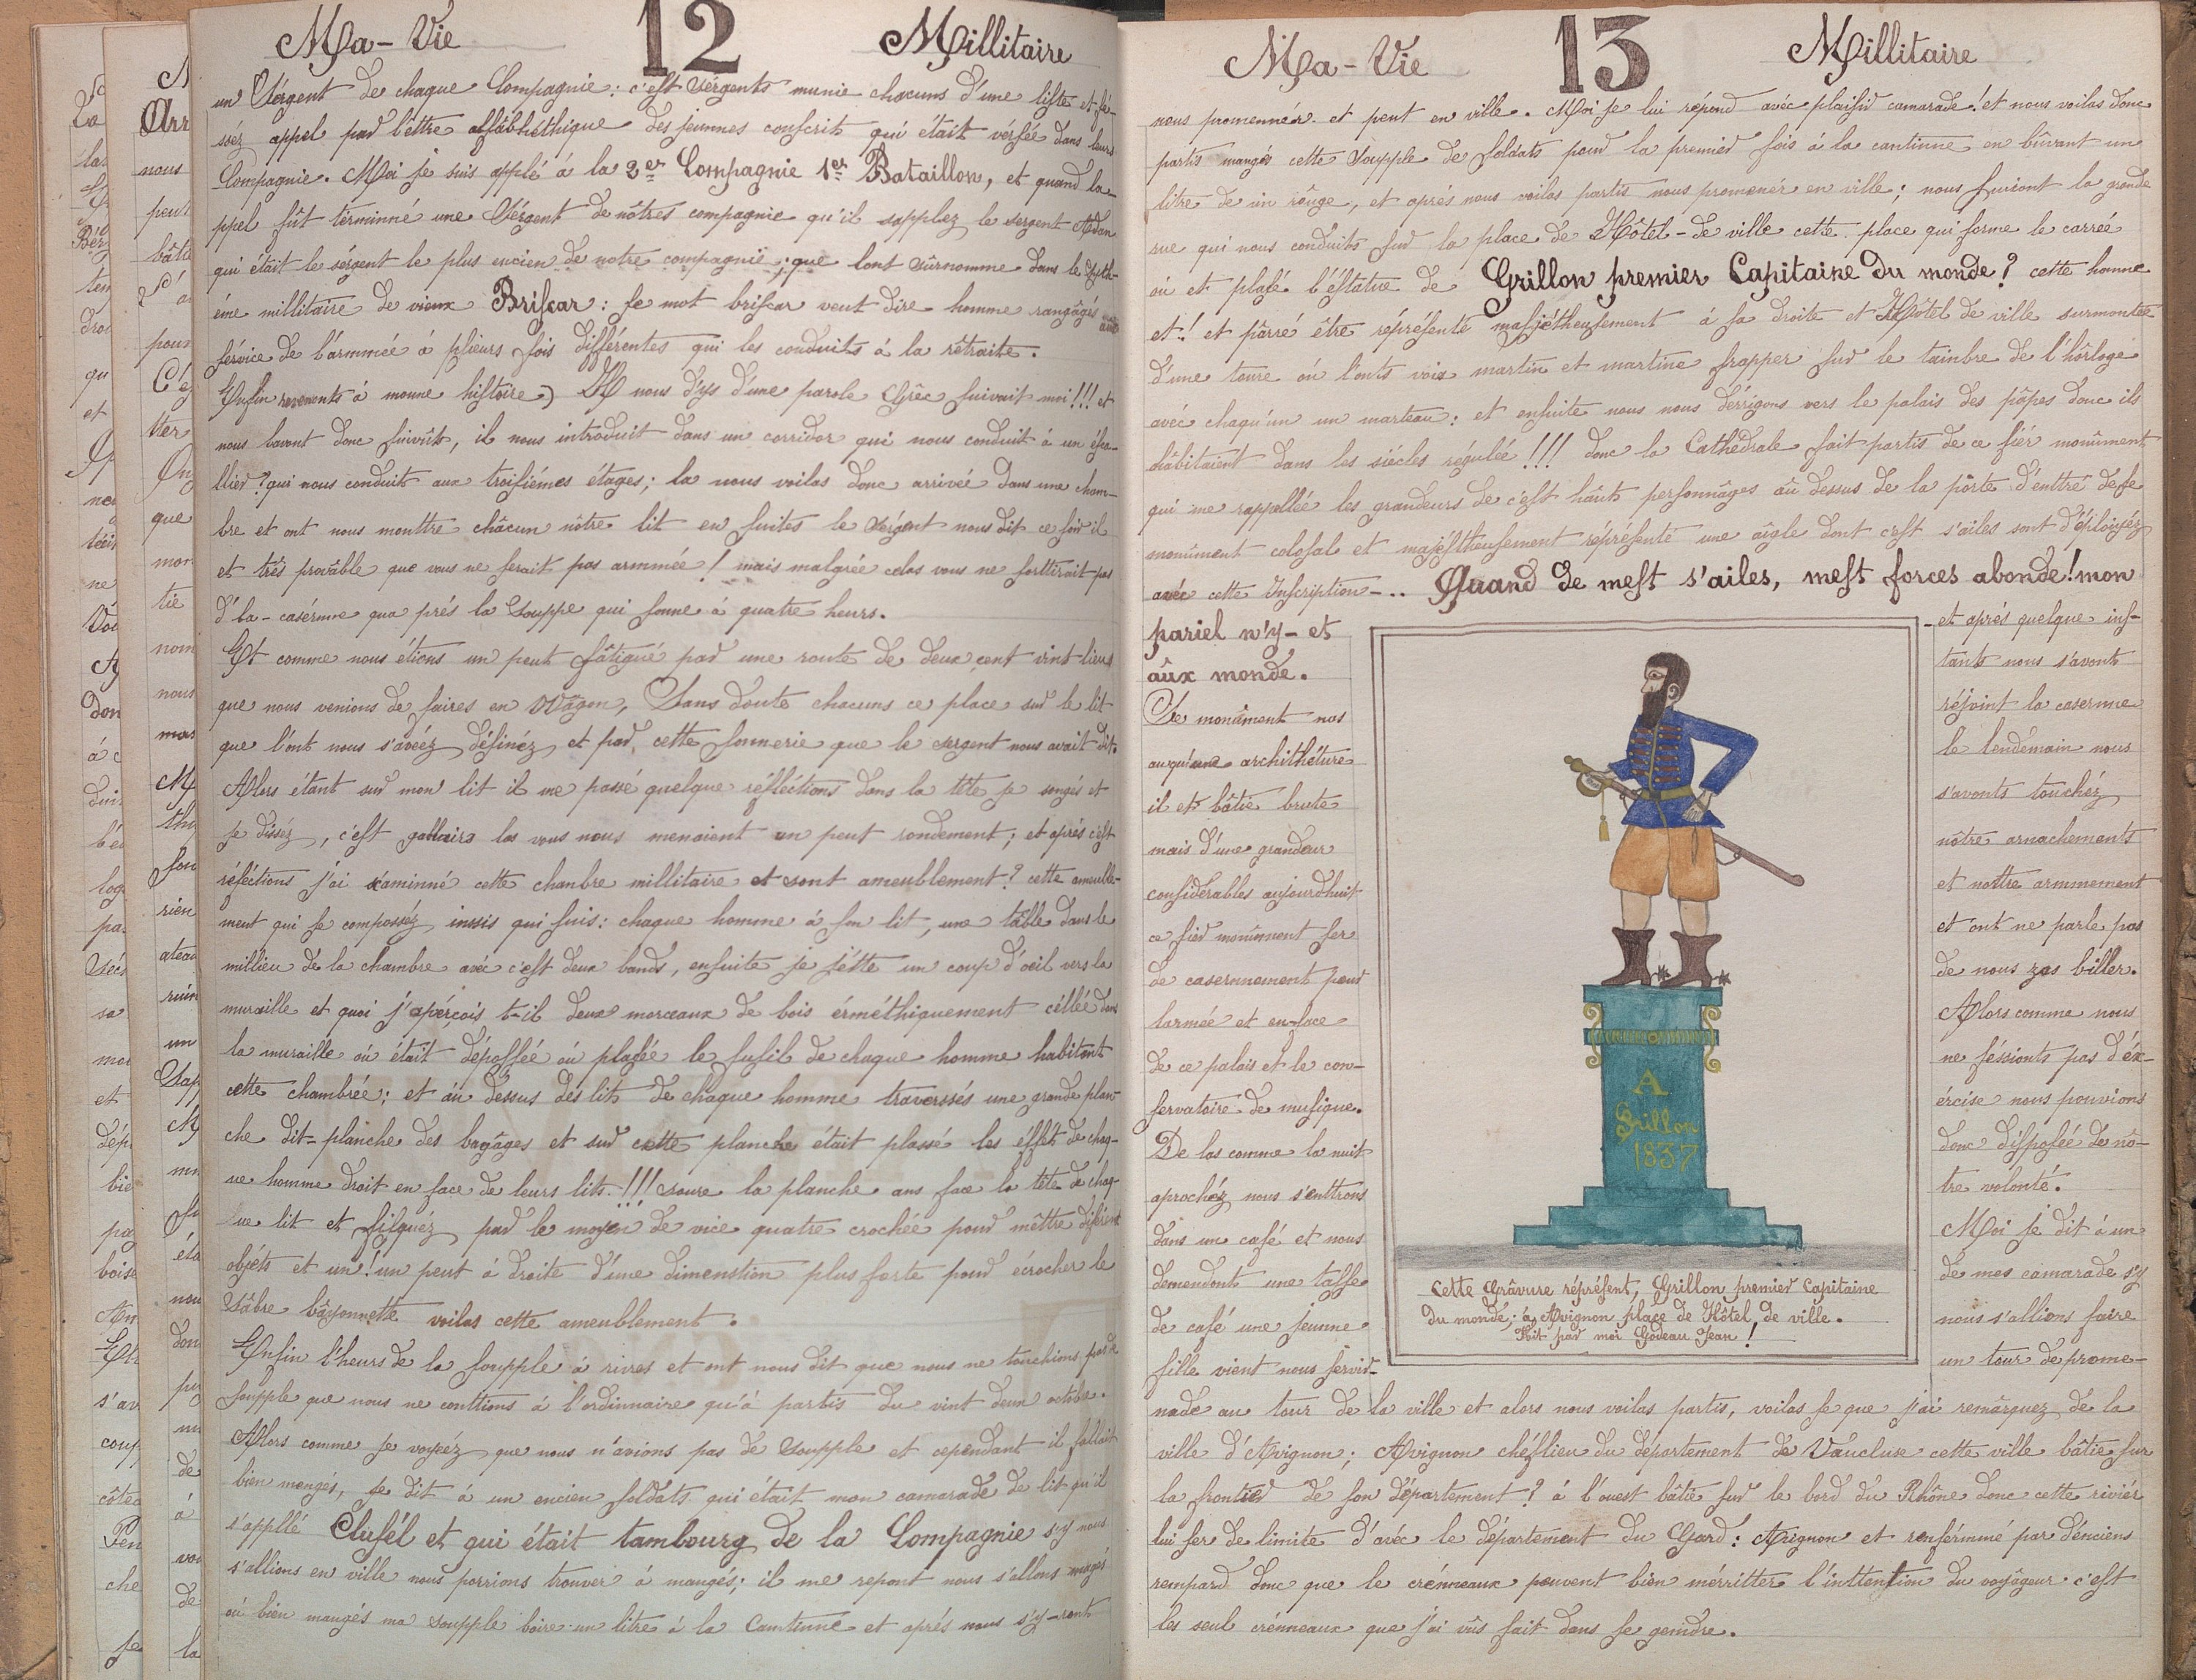 Ma-Vie 12 Millitaire
un Sérgent de chaque Compagnie: c'est sérgents munie chacuns d'une liste et fé-
ssez appel par lèttre alfâbhéthique des jeunnes conscrit qui était vérsée dans leurs
Compagnie. Moi je suis applé à la 2er Compagnie 1er Bataillon, et quand la-
ppel fût términné une Sérgent de nôtres compagnie qu'il sapplez le sergent Adan
qui était le sérgent le plus encien de notre compagnie; que lont sûrnomme dans le systh-
éme millitaire de vieux Briscar: se mot briscar veut dire homme rangâgés aux
sérvice de l'armmée à plieurs fois différentes qui les conduits à la rêtraite.
Enfin revenonts à monne histoire) Il nous d'ys d'une parole Grêc suivait moi!!! et
nous lavont donc suivût, il nous introduit dans un corridor qui nous conduit à un èsca-
llier? qui nous conduit aux troisiémes étages; la nous voilas donc arriveé dans une cham-
bre et ont nous monttre châcun nôtre lit en suites le sérgent nous dit ce soir il
et très provâble que vous ne serait pas armmée! mais malgrée celas vous ne sorttirait pas
d'la-casérnne qua prés la Souppe qui sonne à quatre heurs.
Et comme nous étions un peut fâtigué par une route de deux cent vint-lieus
que nous venions de faires en Wâgon, Sans doute chacuns ce place sur le lit
que l'ont nous s'avéez désinéz et par cette sonnerie que le sergent nous avait dit.
Alors étant sur mon lit il me passé quelque réfléctions dans la tête je songés et
je dissez, c'est galliairs las vous nous menaient un peut rondement; et aprés c'est
réfections j'ai xaminné cette chanbre millitaire et sont ameublement? cette ameuble-
ment qui se compossez inssis qui suis: chaque homme à son lit, une tâble dans le
millieu de la chambre avéc c'est deux bands, ensuite je j'êtte un coup d'oeil vers la
muraille et quoi j'apérçois t-il deux morceaux de bois érméthiquement cellée dans
la muraille où était dépossée où plasée le fusil de chaque homme habitant
cette chambrée: et âu dessus des lits de chaque homme traverssés une grande plan-
che dit-planche des bagâges et sur cette planche était plassé les éffêt de chaq-
ue homme droit en face de leurs lits.!!! soure la planche ans face la tête de chaq-
ue lit et filquéz par le moyen de vice quatre crochée pour mêttre diférent
objéts et un! un peut à droite d'une dimenstion plus forte pour écrocher le
sâbre bâyonnette voilas cette ameublement.
Enfin l'heurs de la souppe à rivres et ont nous dit que nous ne touchions pas de
souppe que nous ne conttions à l'ordinnaire qu'à partis du vint deux octobre.
Alors comme je voyéez que nous n'avions pas de souppe et cependant il fallait
bien mangés, je dit à un encien soldats qui était mon camarade de lit qu'il
s'appllé Clusél et qui était tambourg de la Compagnie s'y nous
s'allions en ville nous porrions trouver à mangés; il me repont nous s'allons mangés
où bien mangés ma souppe boire un litre à la Cantinne et aprés nous s'y-ront
Ma-Vie 13 Millitaire
nous promennér et peut en ville. Moi je lui répond avéc plaisir camarade! et nous voilas donc
partis mangés cette souppe de soldats pour la premier fois à la cantinne en bûvant un
litre de vin rôuge, et aprés nous voilas partis nous promenér en ville; nous suivont la grande
rue qui nous conduits sur la place de Hôtel-de ville cette place qui forme le carreé
où et plasé l'éstatue de Grillon premier Capitaine du monde? cette homne
et! et pârré être réprésenté masjétheusement à sa droite et Hôtel de ville surmontée
d'une toure où l'onts vois martin et martine frapper sur le taimbre de l'hôrloge
avéc chaqu'un un marteau: et ensuite nous nous dérrigons vers le palais des pâpes donc ils
hâbitaient dans les siécles régulée!!! donc la Cathédrale fait partis de ce fiér monûment
qui me rappellée les grandeurs de c'est hâuts personnâges âu dessus de la pôrte d'enttré de se
monûment colosale et majéstheusement réprésente une aîgle dont c'est s'ailes sont d'éploiyéz
avéc cette Inscription-.. Quand de mest s'ailes, mest forces abonde! mon
pariel n'y-et
âux monde.
Se monûment nas
auqu'une archithéture
il et bâtie brute
mais d'une grandeur
considérables aujourdhuit
ce fier monûment ser
de casernnement pour
larmée et en-face
de ce palais et le con-
servatoire de musique.
De las comme la nuit
aprochéz nous s'enttrons
dans un café et nous
demendont une tasse
de café une jeunne
fille vient nous servir-
A
Grillon
1837
Cette Grâvure réprésent, Grillon premier Capitaine
du monde; à Avignon place de Hôtel de ville.
Fait par moi Godeau Jean!
-et aprés quelque ins-
tants nous s'avont
réjoint la casernne
le lendémain nous
s'avonts touchéz
nôtre arnachements
et nottre armmement
et ont ne parle pas
de nous zas biller.
Alors comme nous
ne féssionts pas d'éx-
ércise nous pouvions
donc disposéé de nô-
tre volonté.
Moi je dit à un
de mes camarade s'y
nous s'allions faire
un tour de prome-
nade au tour de la ville et alors nous voilas partis, voilas se que j'ai remârquez de la
ville d'Avignon; Avignon chéflieu du département de Vâucluse cette ville bâtie sur
la frontier de son département? à l'ouest bâtie sur le bord du Rhône donc cette riviér
lui ser de limite d'avéc le département du Gard: Avignon et renférmmé par d'énciens
rempard donc que le crénneaux peuvent bien mérritter l'inttenstion du voyâgeur c'est
les seul crénneaux que j'ai vûs fait dans se genndre.